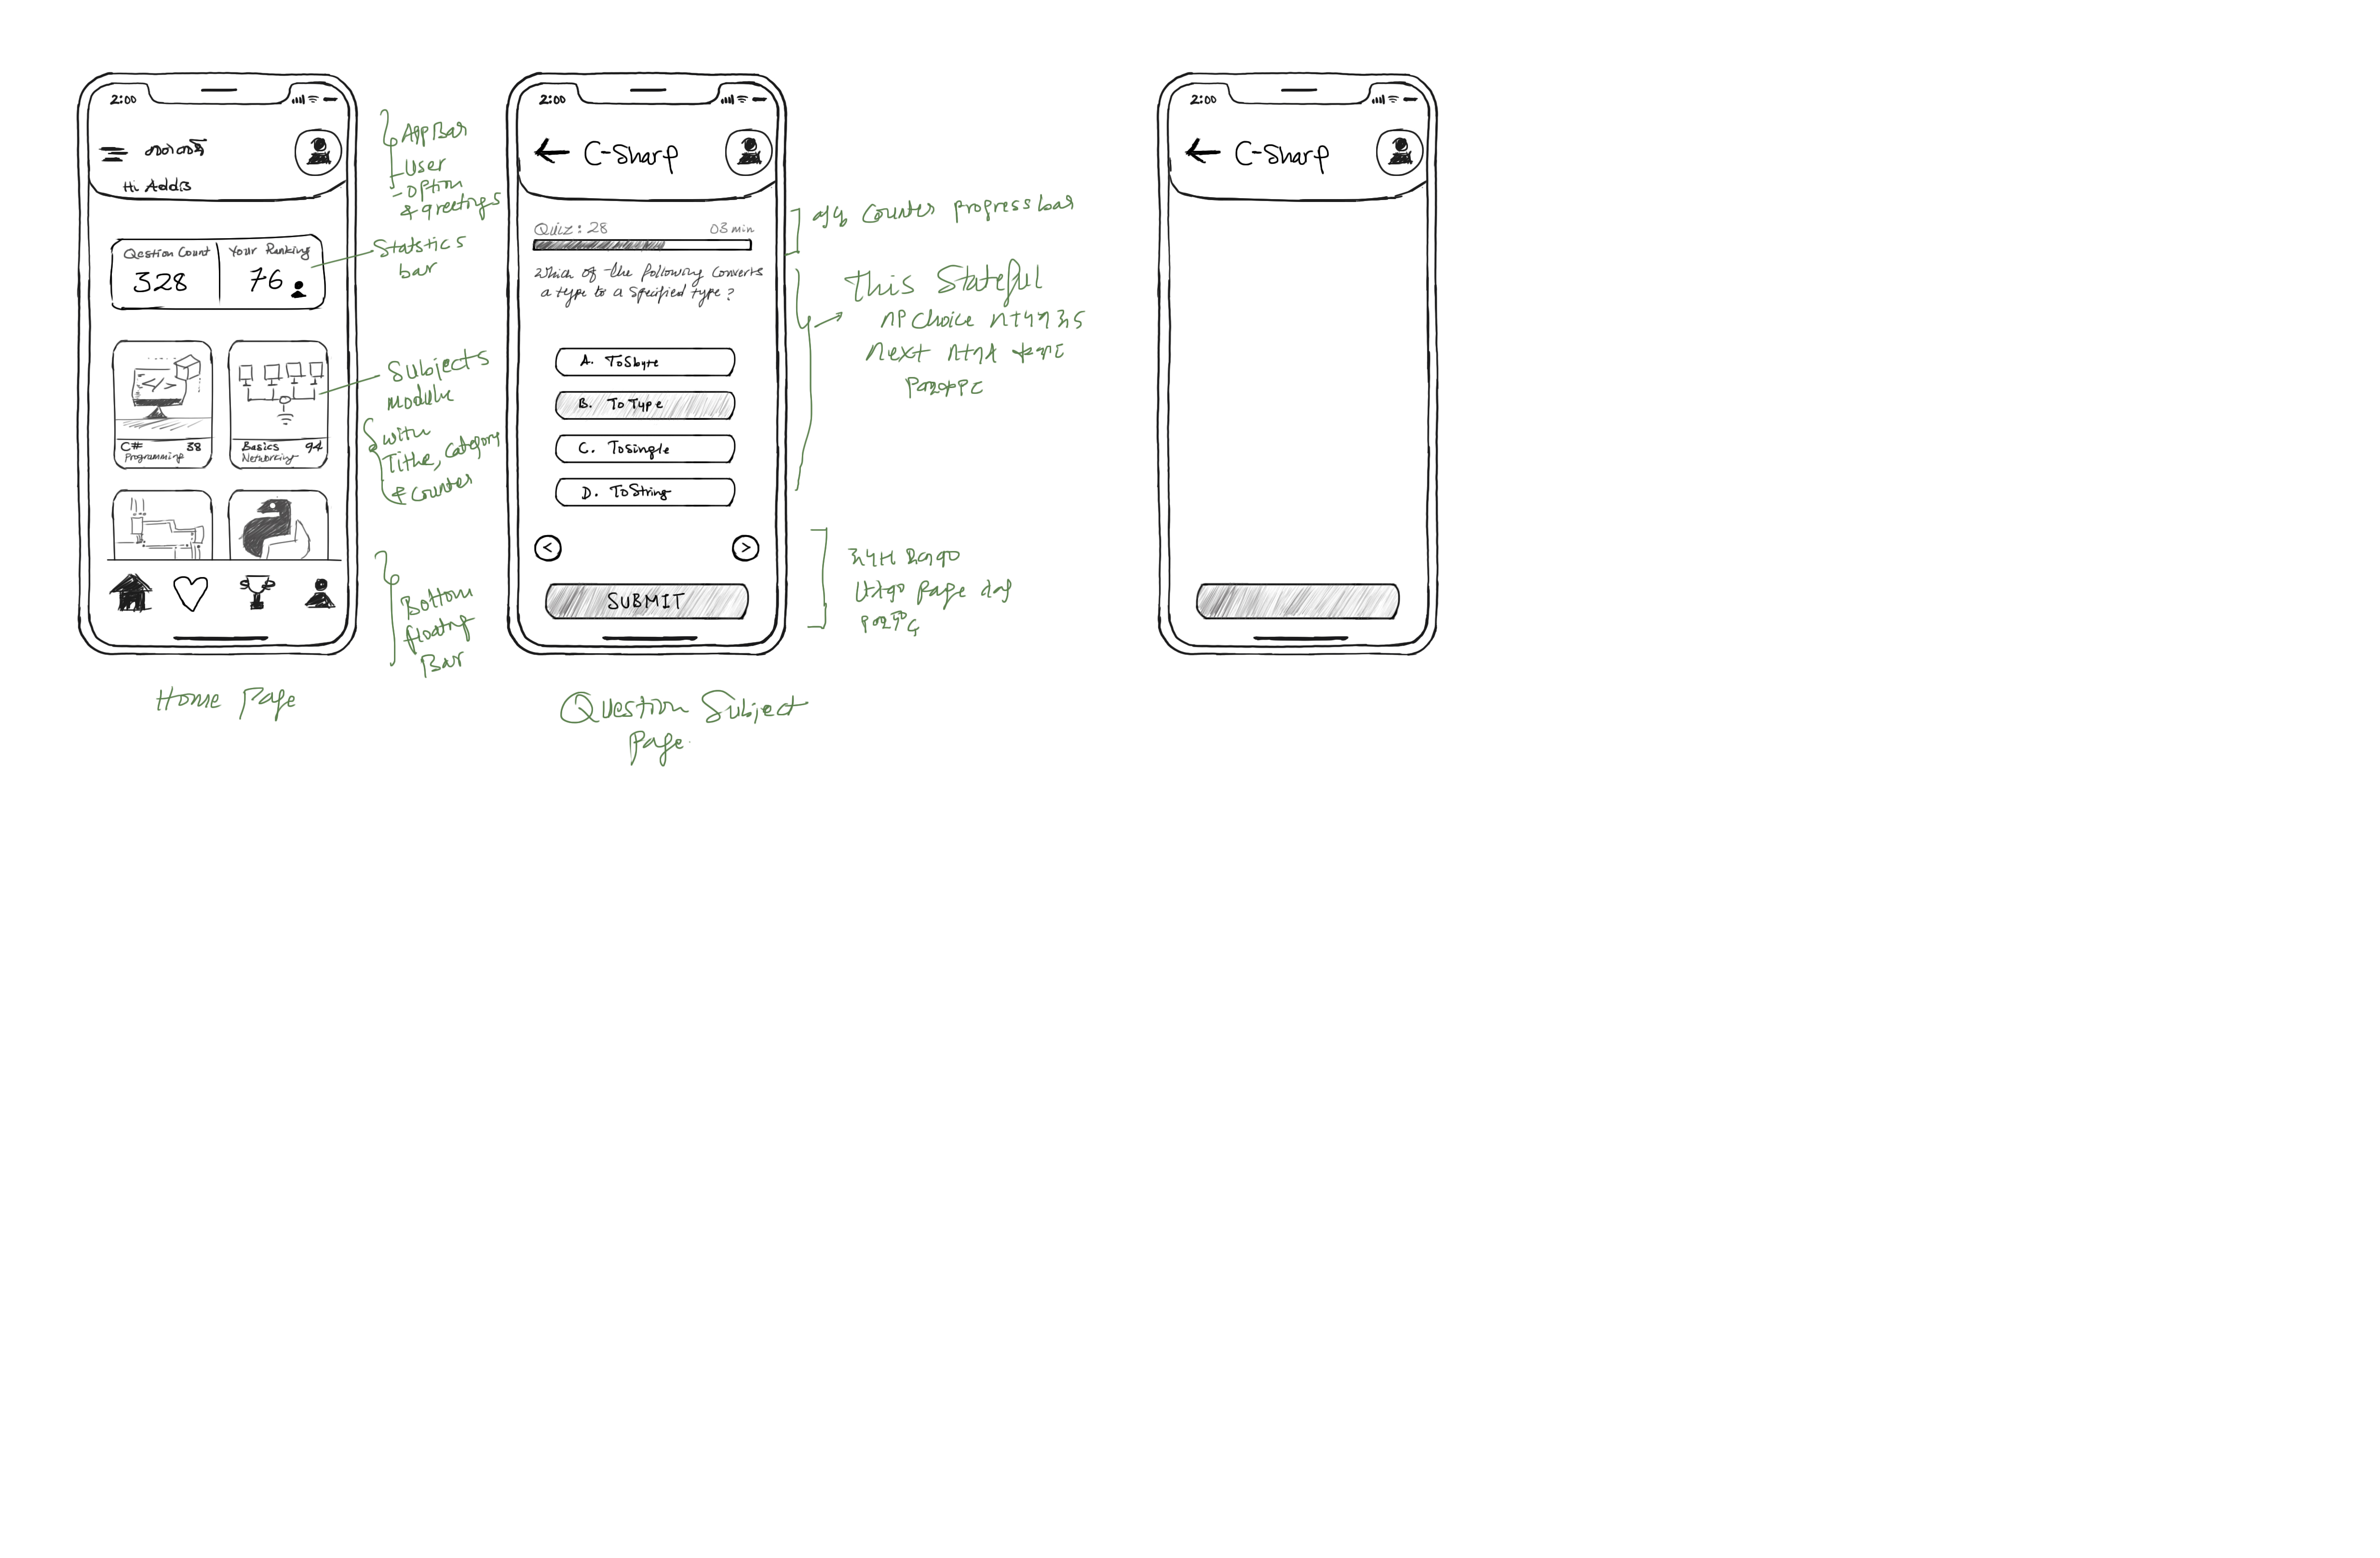 2:00
Hi Addis
Qestion Count
Your Ranking
328
76
C#
38
Programming
Basics
94
Networking
Home Page
AppBar
- User
- option
& greetings
Statstics
bar
Subjects
module
with
Tithe, category
& Counter
Bottom
floating
Bar
2:00
C-Sharp
Quiz: 28
03 min
Which of the following converts
a type to a specified type?
A. ToSbyte
B. ToType
C. Tosingle
D. ToString
<
>
SUBMIT
Question Subject
Page
Counter Progress bar
This Stateful
Choice
Next
Page
2:00
C-Sharp